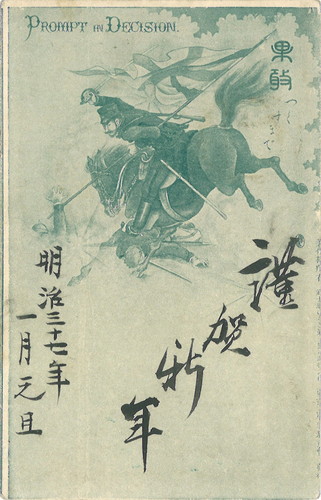 PROMPT IN DECISION.
果敢
謹賀新年
明治三十七年
一月元旦